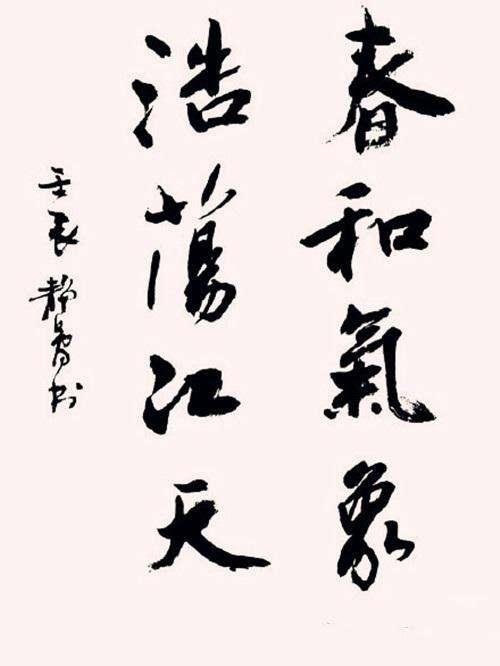 春和氣象
浩蕩江天
壬辰 靜 書